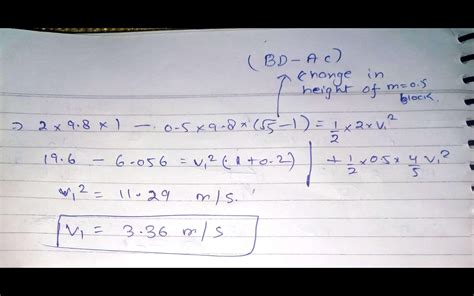 (BD - AC)
change in
height of m=0.5
block.
⇒ 2×9.8×1 - 0.5×9.8×(√5-1) = 1/2 ×2×v₁²
19.6 - 6.056 = v₁² (1+0.2) | + 1/2 ×0.5× 4/5 v₁²
v₁² = 11.29 m/s.
v₁ = 3.36 m/s